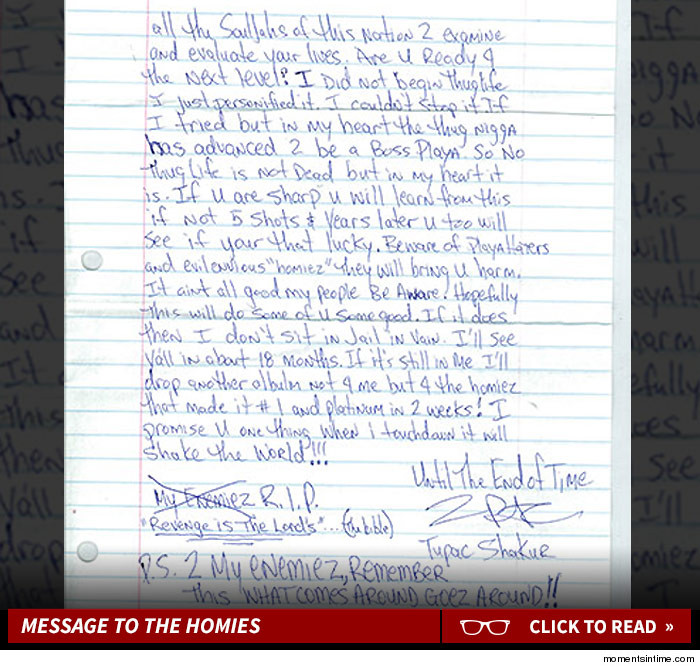 all the Souljahs of this Nation 2 examine
and evaluate your lives. Are U Ready 4
the Next level? I Did Not begin thuglife
I just personified it. I couldn't stop it If
I tried but in my heart the thug Nigga
has advanced 2 be a Boss Playa. So No
Thug Life is not Dead but in my heart it
is. If U are sharp U will learn from this
if Not 5 Shots & Years later U too will
see if your that lucky. Beware of Playa Haters
and evil envious "homiez" they will bring U harm.
It aint all good my people Be Aware! Hopefully
this will do some of U some good. If it does
then I don't sit in Jail in Vain. I'll see
Yáll in about 18 months. If it's still in Me I'll
drop another album Not 4 me but 4 the homiez
that made it #1 and platinum in 2 weeks! I
promise U one thing when I touchdown it will
Shake the World!!!
Until The End of Time
My Enemiez R.I.P.
"Revenge is The Lord's"... (the bible)
Tupac Shakur
P.S. 2 My enemiez, Remember
this WHAT COMES AROUND GOEZ AROUND!!
MESSAGE TO THE HOMIES
CLICK TO READ »
momentsintime.com